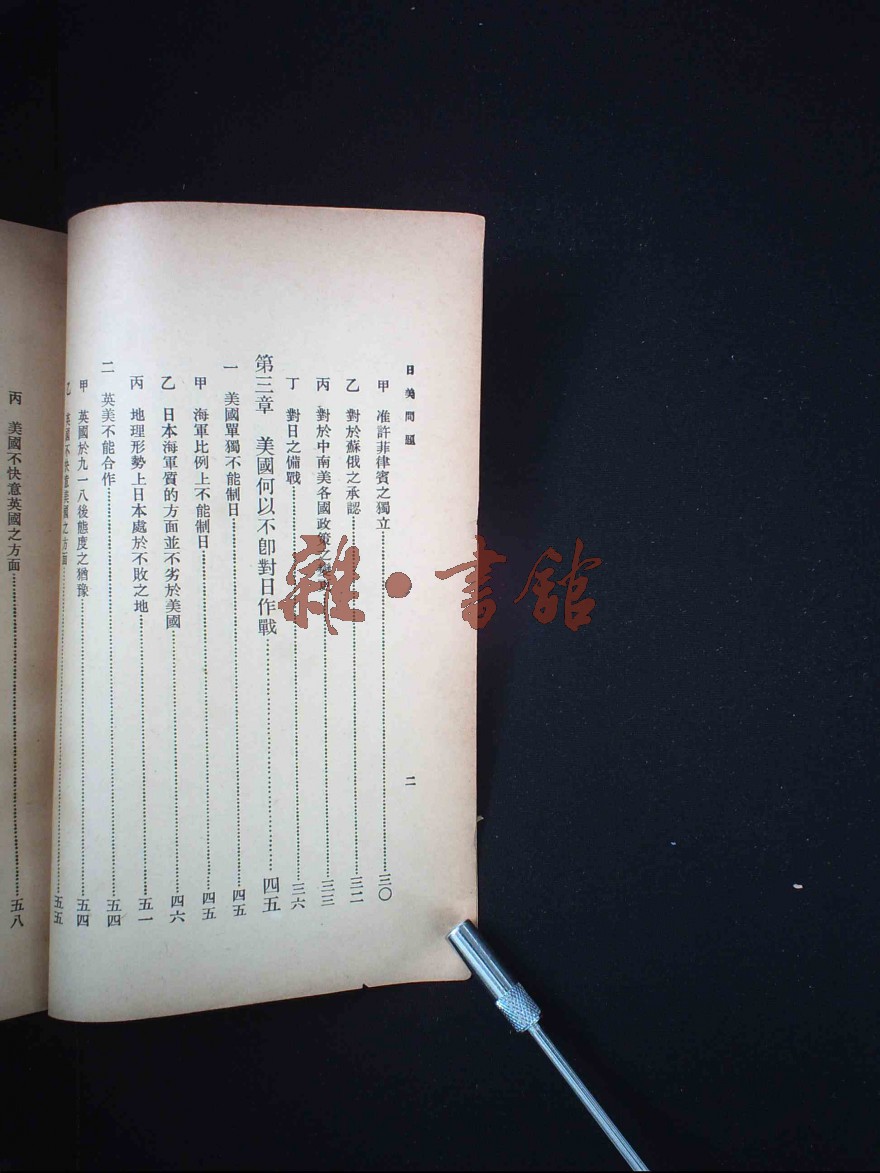 日美問題
二
甲　准許菲律賓之獨立……三〇
乙　對於蘇俄之承認……三二
丙　對於中南美各國政策之……三三
丁　對日之備戰……三六
第三章　美國何以不卽對日作戰……四五
一　美國單獨不能制日……四五
甲　海軍比例上不能制日……四五
乙　日本海軍質的方面並不劣於美國……四六
丙　地理形勢上日本處於不敗之地……五一
二　英美不能合作……五四
甲　英國於九一八後態度之猶豫……五四
乙　英國不快意美國之方面……五五
丙　美國不快意英國之方面……五八
雜·書館